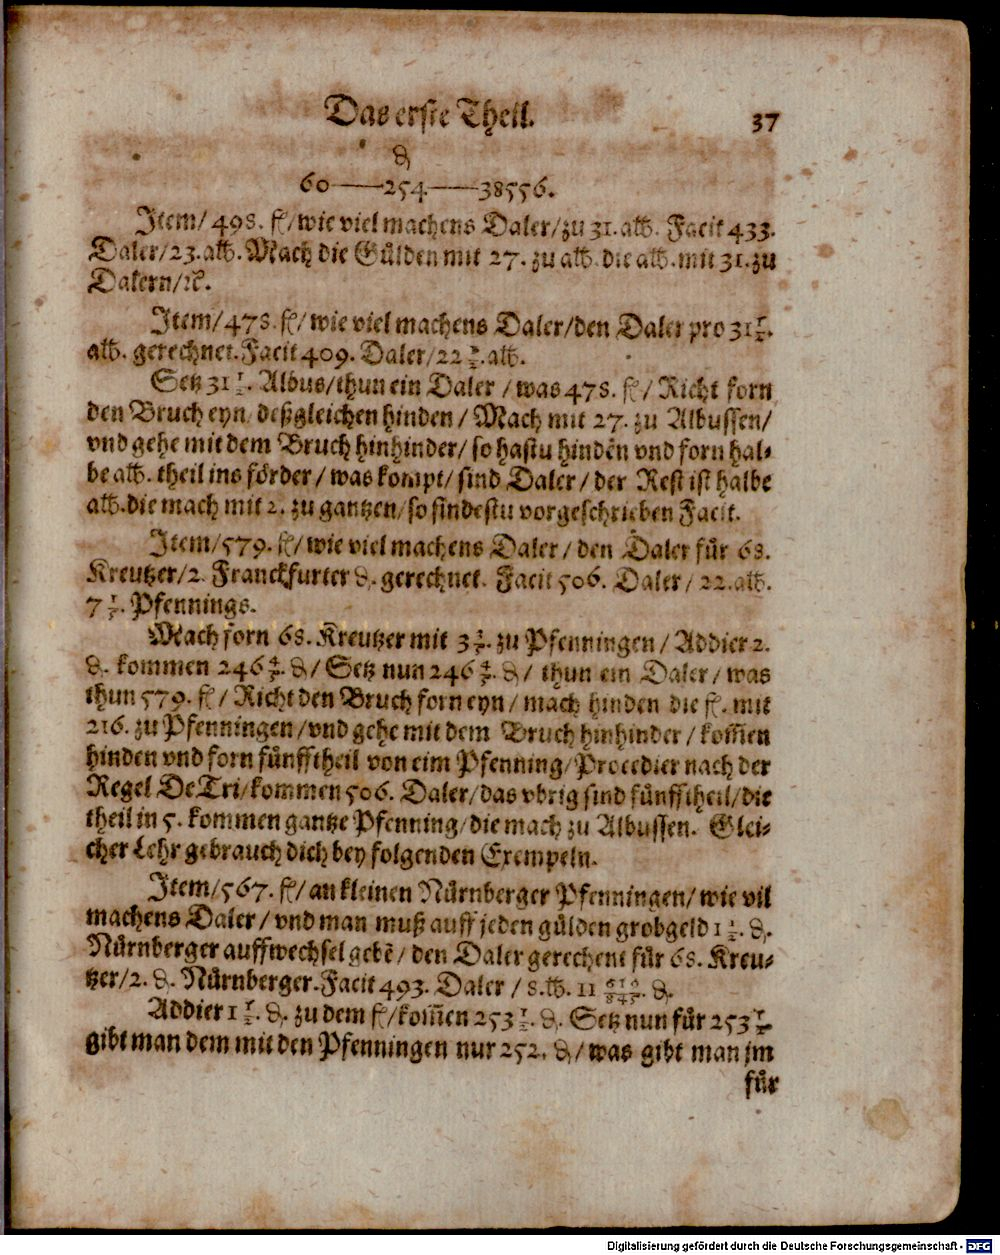 Das erste Theil. 37
₰
60——254——38556.
Item/ 498. fl/ wie viel machens Daler/ zu 31. alb. Facit 433.
Daler/ 23. alb. Mach die Gülden mit 27. zu alb. die alb. mit 31. zu
Dalern/ ꝛc.
Item/ 478. fl/ wie viel machens Daler/ den Daler pro 31 1/2.
alb. gerechnet. Facit 409. Daler/ 22 1/2. alb.
Setz 31 1/2. Albus/ thun ein Daler / was 478. fl/ Richt forn
den Bruch eyn/ deßgleichen hinden / Mach mit 27. zu Albussen/
vnd gehe mit dem Bruch hinhinder/ so hastu hinden vnd forn hal⸗
be alb. theil ins förder / was kompt/ sind Daler / der Rest ist halbe
alb. die mach mit 2. zu gantzen/ so findestu vorgeschrieben Facit.
Item/ 579. fl/ wie viel machens Daler / den Daler für 68.
Kreutzer/ 2. Franckfurter ₰. gerechnet. Facit 506. Daler / 22. alb.
7 1/5. Pfennings.
Mach forn 68. Kreutzer mit 3 3/5. zu Pfenningen / Addier 2.
₰. kommen 246 4/5. ₰/ Setz nun 246 4/5. ₰/ thun ein Daler / was
thun 579. fl / Richt den Bruch forn eyn / mach hinden die fl. mit
216. zu Pfenningen / vnd gehe mit dem Bruch hinhinder / kom̃en
hinden vnd forn fünfftheil von eim Pfenning/ Procedier nach der
Regel De Tri/ kommen 506. Daler/ das vbrig sind fünfftheil/ die
theil in 5. kommen gantze Pfenning/ die mach zu Albussen. Glei⸗
cher Lehr gebrauch dich bey folgenden Exempeln.
Item/ 567. fl/ an kleinen Nürnberger Pfenningen/ wie vil
machens Daler / vnd man muß auff jeden gülden grobgeld 1 1/2. ₰.
Nürnberger auffwechsel gebẽ / den Daler gerechent für 68. Kreu⸗
tzer/ 2. ₰. Nürnberger. Facit 493. Daler / 8. lb. 11 610/845. ₰.
Addier 1 1/2. ₰. zu dem fl/ kom̃en 253 1/2. ₰. Setz nun für 253 1/2.
gibt man dem mit den Pfenningen nur 252. ₰/ was gibt man jm
für
Digitalisierung gefördert durch die Deutsche Forschungsgemeinschaft - DFG